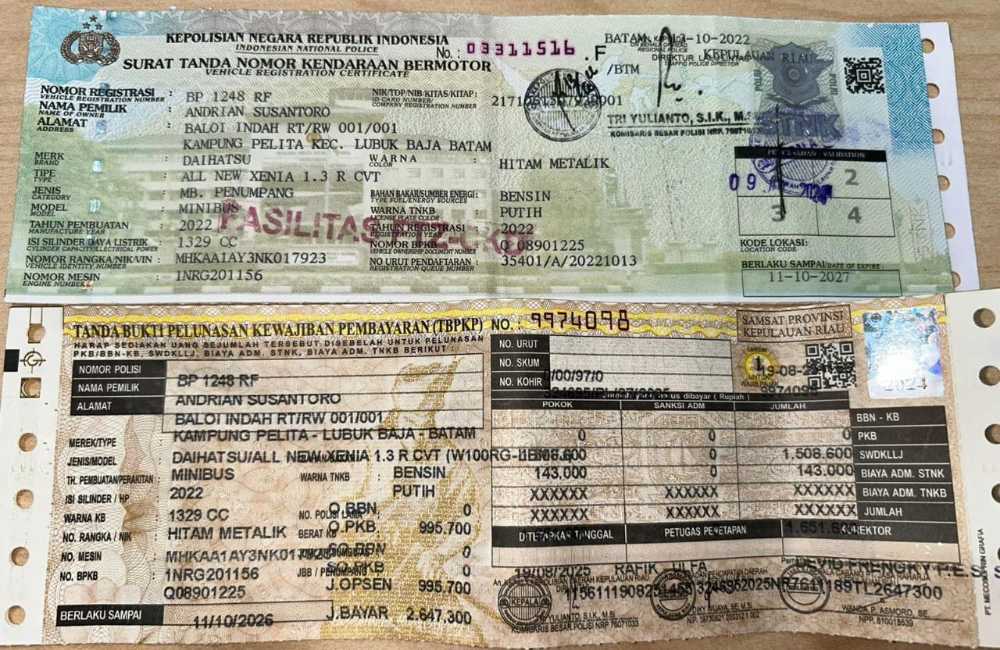 KEPOLISIAN NEGARA REPUBLIK INDONESIA
INDONESIAN NATIONAL POLICE
No.: 03311516 .F
SURAT TANDA NOMOR KENDARAAN BERMOTOR
VEHICLE REGISTRATION CERTIFICATE
/BTM
BATAM, 13-10-2022
KEPULAUAN RIAU
TRI YULIANTO, S.I.K., M.
NOMOR REGISTRASI : BP 1248 RF
VEHICLE REGISTRATION NUMBER
NIK/TDP/NIB/KITAS/KITAP :
ID CARD NUMBER/
COMPANY REGISTRATION NUMBER
NAMA PEMILIK : ANDRIAN SUSANTORO
NAME OF OWNER
ALAMAT : BALOI INDAH RT/RW 001/001
ADDRESS
KAMPUNG PELITA KEC. LUBUK BAJA BATAM
MERK : DAIHATSU
BRAND
WARNA : HITAM METALIK
COLOR
TIPE : ALL NEW XENIA 1.3 R CVT
TYPE
JENIS : MB. PENUMPANG
CATEGORY
BAHAN BAKAR/SUMBER ENERGI : BENSIN
TYPE FUEL/ENERGY SOURCES
MODEL : MINIBUS
MODEL
WARNA TNKB : PUTIH
LICENSE PLATE COLOR
TAHUN PEMBUATAN : 2022
MANUFACTURE YEAR
TAHUN REGISTRASI : 2022
ISI SILINDER/DAYA LISTRIK : 1329 CC
CYLINDER CAPACITY/ELECTRICAL POWER
NOMOR BPKB : Q 08901225
VEHICLE OWNERSHIP DOCUMENT NUMBER
NOMOR RANGKA/NIK/VIN : MHKAA1AY3NK017923
VEHICLE IDENTITY NUMBER
NO URUT PENDAFTARAN : 35401/A/20221013
REGISTRATION QUEUE NUMBER
NOMOR MESIN : 1NRG201156
ENGINE NUMBER
FASILITAS
STNK
VALIDATION
2
3
4
KODE LOKASI:
LOCATION CODE
BERLAKU SAMPAI/DATE OF EXPIRE:
11-10-2027
TANDA BUKTI PELUNASAN KEWAJIBAN PEMBAYARAN (TBPKP) NO. : 9974098
HARAP SEDIAKAN UANG SEJUMLAH TERSEBUT DISEBELAH UNTUK PELUNASAN
PKB/BBN-KB, SWDKLLJ, BIAYA ADM. STNK, BIAYA ADM. TNKB BERIKUT :
SAMSAT PROVINSI
KEPULAUAN RIAU
2024
NO. URUT
NO. SKUM
NO. KOHIR
/00/97/0
NOMOR POLISI : BP 1248 RF
NAMA PEMILIK : ANDRIAN SUSANTORO
ALAMAT : BALOI INDAH RT/RW 001/001
KAMPUNG PELITA - LUBUK BAJA - BATAM
MEREK/TYPE : DAIHATSU/ALL NEW XENIA 1.3 R CVT (W100RG-
JENIS/MODEL : MINIBUS
WARNA TNKB : BENSIN
PUTIH
TH. PEMBUATAN/PERAKITAN : 2022
ISI SILINDER / HP : 1329 CC
WARNA KB : HITAM METALIK
NO. RANGKA / NIK
NO. MESIN : 1NRG201156
NO. BPKB : Q08901225
BERLAKU SAMPAI : 11/10/2026
O.BBN 0
O.PKB 995.700
0
0
J.OPSEN 995.700
J.BAYAR 2.647.300
POKOK SANKSI ADM JUMLAH
0 0 0 BBN - KB
PKB
0 1.508.600 SWDKLLJ
143.000 0 143.000 BIAYA ADM. STNK
XXXXXX XXXXXX XXXXXX BIAYA ADM. TNKB
XXXXXX XXXXXX XXXXXX JUMLAH
DITETAPKAN TANGGAL
PETUGAS PENETAPAN
19/08/2025
RAFIK ULFA
KOMISARIS BESAR POLISI NRP 76071033